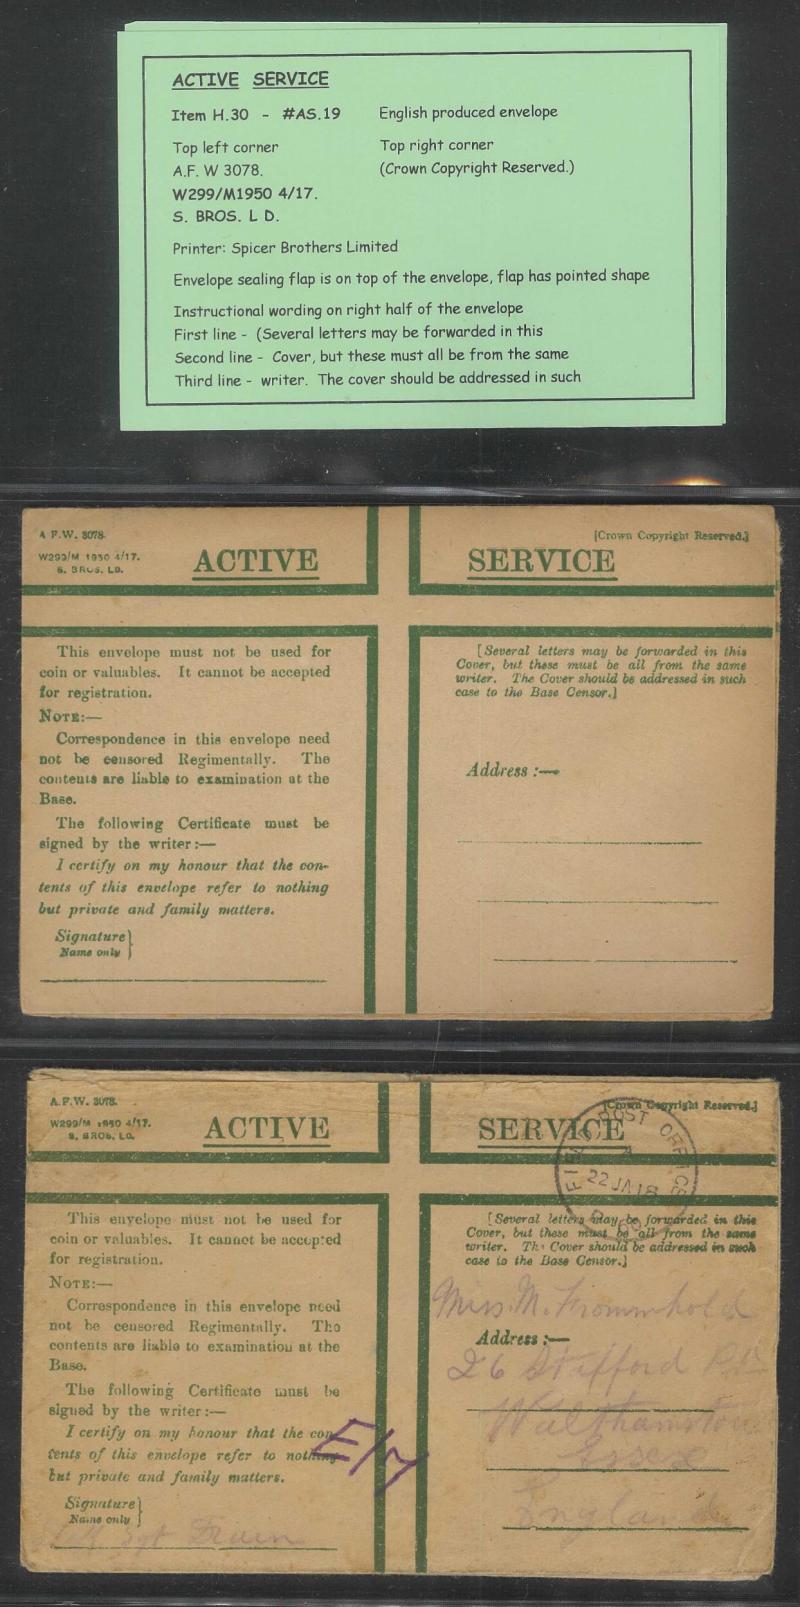 ACTIVE SERVICE
Item H.30 - #AS.19 English produced envelope
Top left corner Top right corner
A.F. W 3078. (Crown Copyright Reserved.)
W299/M1950 4/17.
S. BROS. L D.
Printer: Spicer Brothers Limited
Envelope sealing flap is on top of the envelope, flap has pointed shape
Instructional wording on right half of the envelope
First line - (Several letters may be forwarded in this
Second line - Cover, but these must all be from the same
Third line - writer. The cover should be addressed in such
A F.W. 3078.
W299/M 1950 4/17.
S. BROS. LD.
ACTIVE SERVICE
[Crown Copyright Reserved.]
This envelope must not be used for
coin or valuables. It cannot be accepted
for registration.
NOTE:—
Correspondence in this envelope need
not be censored Regimentally. The
contents are liable to examination at the
Base.
The following Certificate must be
signed by the writer:—
I certify on my honour that the con-
tents of this envelope refer to nothing
but private and family matters.
Signature}
Name only
[Several letters may be forwarded in this
Cover, but these must be all from the same
writer. The Cover should be addressed in such
case to the Base Censor.]
Address :—
A.F.W. 3078.
W299/M 1950 4/17.
S. BROS. LD.
ACTIVE SERVICE
[Crown Copyright Reserved.]
FIELD POST OFFICE
22 JA 18
This envelope must not be used for
coin or valuables. It cannot be accepted
for registration.
NOTE:—
Correspondence in this envelope need
not be censored Regimentally. The
contents are liable to examination at the
Base.
The following Certificate must be
signed by the writer:—
I certify on my honour that the con-
tents of this envelope refer to nothing
but private and family matters.
Signature}
Name only
Sgt
E/7
[Several letters may be forwarded in this
Cover, but these must be all from the same
writer. The Cover should be addressed in such
case to the Base Censor.]
Miss. M. Frommhold
Address :—
26 Stifford Rd
Walthamstow
Essex
England